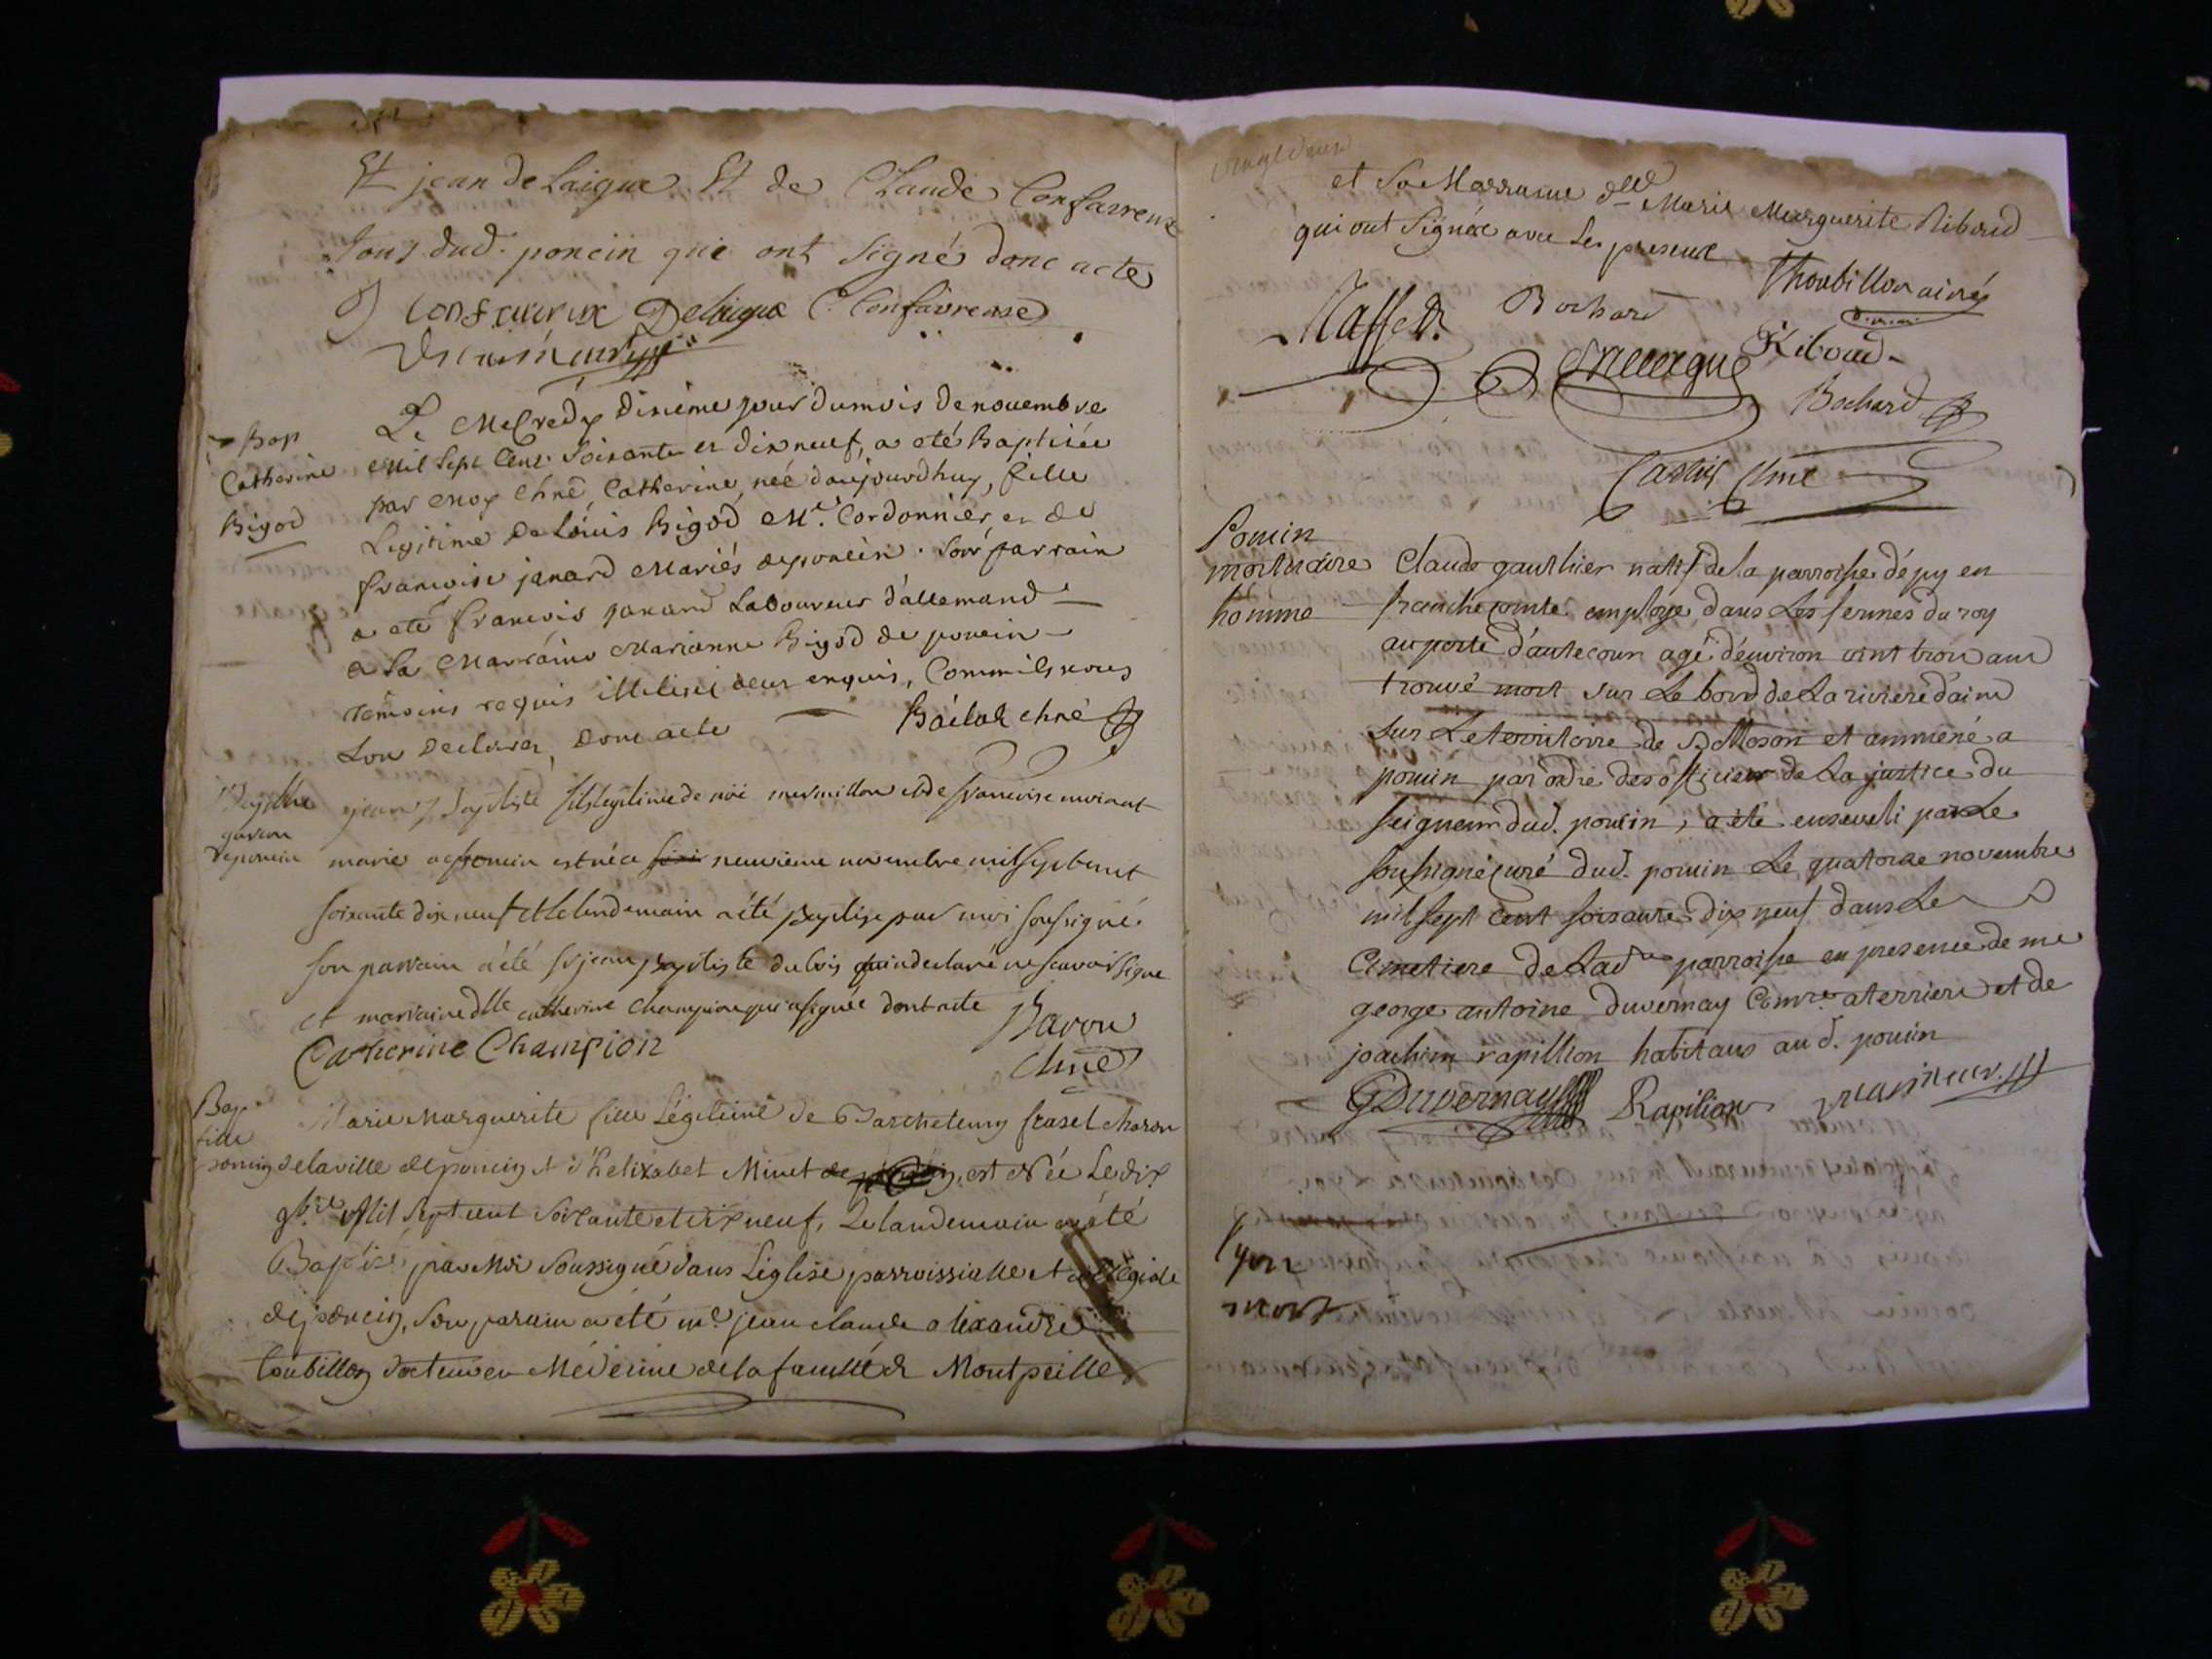 Et jean de Laigue Et de Claude Confavreux
Tous dud. poncin qui ont signé donc acte
J Confavreux Delaigue C. Confavreuse
Bap
Catherine
Bigod
Le Mecredy Dixieme jour du mois de novembre
Mil Sept Cent Soixante et dix neuf, a été Baptisée
par Moy Chne, Catherine, née d'aujourdhuy, fille
Legitime De Louis Bigod Me. Cordonnier, et de
francoise janard Mariés de poncin. Son parrain
a eté francois janard Laboureur d'allemand
e La Marraine Marianne Bigod de poncin
Temoins requis illiterés deux enquis, Comme ils nous
L'on Declarer, Donc acte Bailat chne
Baptême
garcon
de poncin
jean Baptiste fils legitime de noé mermillon et de francoise moirout
mariés a poncin est né ce neuvieme novembre mil sept cent
soixante dix neuf et le lendemain a été Baptisé par moi soussigné.
son parrain a été sr jean Baptiste dubois qui a declaré ne scavoir signe
et marraine dlle catherine Champion qui a signée dont acte
Catherine Champion
Baron
Chne
Bap
fille
poncin
Marie Marguerite fille Légitime de Barthelemy frasel charon
de la ville de poncin et d'helizabet Minet est Née Le dix
9bre Mil Sept cent Soixante et dix neuf, Le landemain a été
Baptisé par Moi Soussigné dans L'église parroissialle et collégiale
de poncin, Son parain a été me jean claude alixandre
Toubillon docteur en Médecine de la faculté de Montpeille
vingt deux
et Sa Marraine dlle Marie Marguerite Riboud
qui ont Signée avec Les presents
Thoubillon ainé
D.m.m.
Bochard
Riboud
Bochard
Chne
Poncin
mortuaire
homme
Claude gauthier natif de la parroisse d'épy en
franche comté employé dans Les fermes du roy
au poste d'autecour agé d'environ vint trois ans
trouvé mort sur Le bord de La riviere d'ain
sur Le territoire de et ammené a
poncin par ordre des officiers de La justice du
seigneur dud. poncin, a été enseveli par Le
soussigné curé dud. poncin Le quatorze novembre
mil sept cent soixante dix neuf dans Le
Cimetiere de Ladte parroisse en presence de me
george antoine Duvernay Comre a terriers et de
joachim rapillion habitans aud. poncin
G Duvernay Rapilion
Lyon
mort